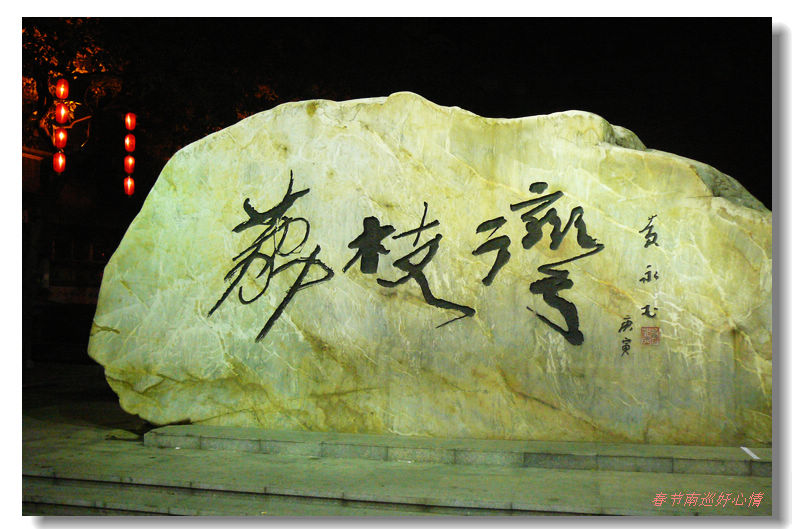 荔枝灣
黄永玉
庚寅
春节南巡好心情